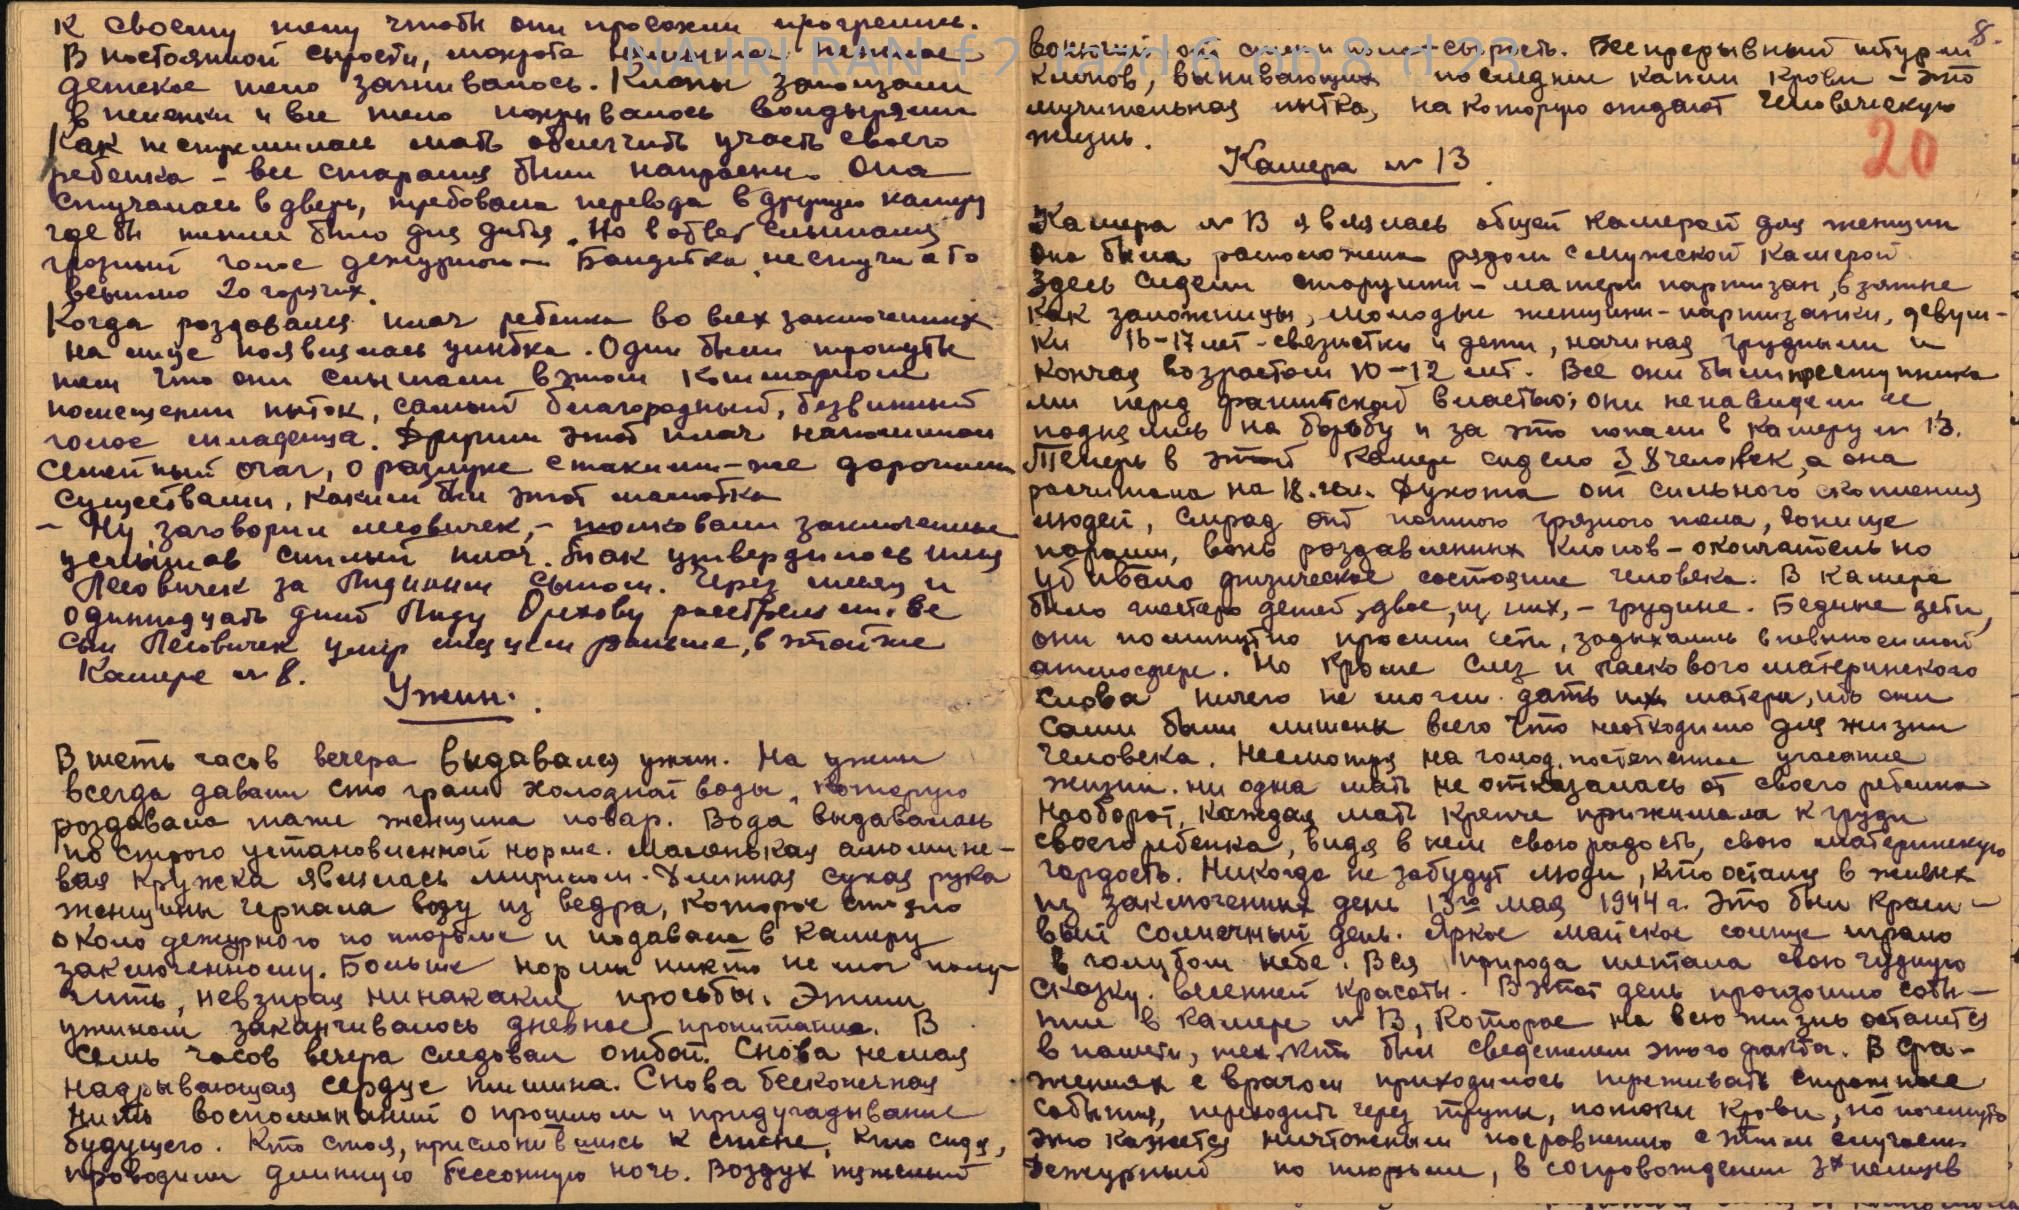 к своему телу чтобы они просохли прогрелись.
В постоянной сырости, мокрота нежное
детское тело загнивалось. Клопы заползали
в пеленки и все тело покрывалось волдырями
Как не стремилась мать облегчить участь своего
ребенка – все старания были напрасны. Она
стучалась в дверь, требовала перевода в другую камеру
где бы теплей было для дитя. Но в ответ слышался
грозный голос дежурного – Бандитка не стучи а то
всыплю 20 горячих.
Когда роздавался плач ребенка во всех заключенных
на лице появлялась улыбка. Одни были тронуты
тем что они слышали в этом кошмарном
помещении пыток, самый благородный, безвинный
голос младенца. Другим этот плач напоминал
семейный очаг, о разлуке с такими-же дорогими
существами, каким был этот малютка
– Ну, заговорил лесовичек, – толковали заключенные
услышав слабый плач. Так утвердилось имя
Лесовичек за Лидиным сыном. Через месяц и
одиннадцать дней Лиду Орехову расстреляли. Ее
сын Лесовичек умер месяцем раньше, в этой же
Камере № 8.
Ужин.
В шесть часов вечера выдавался ужин. На ужин
всегда давали сто грам холодной воды, которую
роздавала таже женщина повар. Вода выдавалась
по строго установленной норме. Маленькая алюмине-
вая кружка являлась мерилом. Длинная сухая рука
женщины черпала воду из ведра, которое стояло
около дежурного по тюрьме и подавала в камеру
заключенному. Больше нормы никто не мог полу-
чить, невзирая ни на какие просьбы. Этим
ужином заканчивалось дневное пропитание. В
семь часов вечера следовал отбой. Снова немая
надрывающая сердце тишина. Снова бесконечная
нить воспоминаний о прошлом и придугадывание
будущего. Кто стоя, прислонившись к стене, кто сидя,
проводили длинную бессонную ночь. Воздух тяжелый
8.
вонючий, от стен и пола – сырость. Беспрерывный штурм
клопов, выпивающих последние капли крови – это
мучительная пытка, на которую отдают человеческую
жизнь.
20
Камера № 13
Камера № 13 являлась общей камерой для женщин
она была расположена рядом с мужской камерой
Здесь сидели старушки – матери партизан, взятые
как заложницы, молодые женщины-партизанки, девуш-
ки 16-17 лет – связистки и дети, начиная грудными и
кончая возрастом 10-12 лет. Все они были преступника
ми перед фашистской властью; они ненавидели ее
поднялись на борьбу и за это попали в камеру № 13.
Теперь в этой камере сидело 38 человек, а она
расчитана на 18 чел. Духота от сильного скопления
людей, смрад от потного грязного тела, вонище
параши, вонь роздавленных клопов – окончательно
убивало физическое состояние человека. В камере
было шестеро детей, двое, из них, – грудные. Бедные дети,
они поминутно просили есть, задыхались в невыносимой
атмосфере. Но кроме слез и ласкового материнского
слова ничего не могли дать их матери, ибо они
сами были лишены всего что необходимо для жизни
человека. Несмотря на голод, постепенное угасание
жизни, ни одна мать не отказалась от своего ребенка
Наоборот, каждая мать крепче прижимала к груди
своего ребенка, видя в нем свою радость, свою материнскую
гордость. Никогда не забудут люди, кто остался в живых
из заключенных день 13го мая 1944 г. Это был краси-
вый солнечный день. Яркое майское солнце играло
в голубом небе. Вся природа шептала свою чудную
сказку весенней красоты. В этот день произошло собы-
тие в камере № 13, которое на всю жизнь останется
в памяти, тех кто был сведетелем этого факта. В сра-
жениях с врагом приходилось переживать страшные
события, переходить через трупы, потоки крови, но почему то
это кажется ничтожным посравнению с этим случаем
Дежурный по тюрьме, в сопровождении 3х немцев
NAJRI RAN f 2 razd 6 op 8 d 23